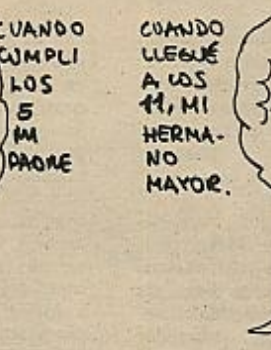 CUANDO
CUMPLI
LOS
5
MI
PADRE
CUANDO
LLEGUÉ
A LOS
11, MI
HERMA-
NO
MAYOR.